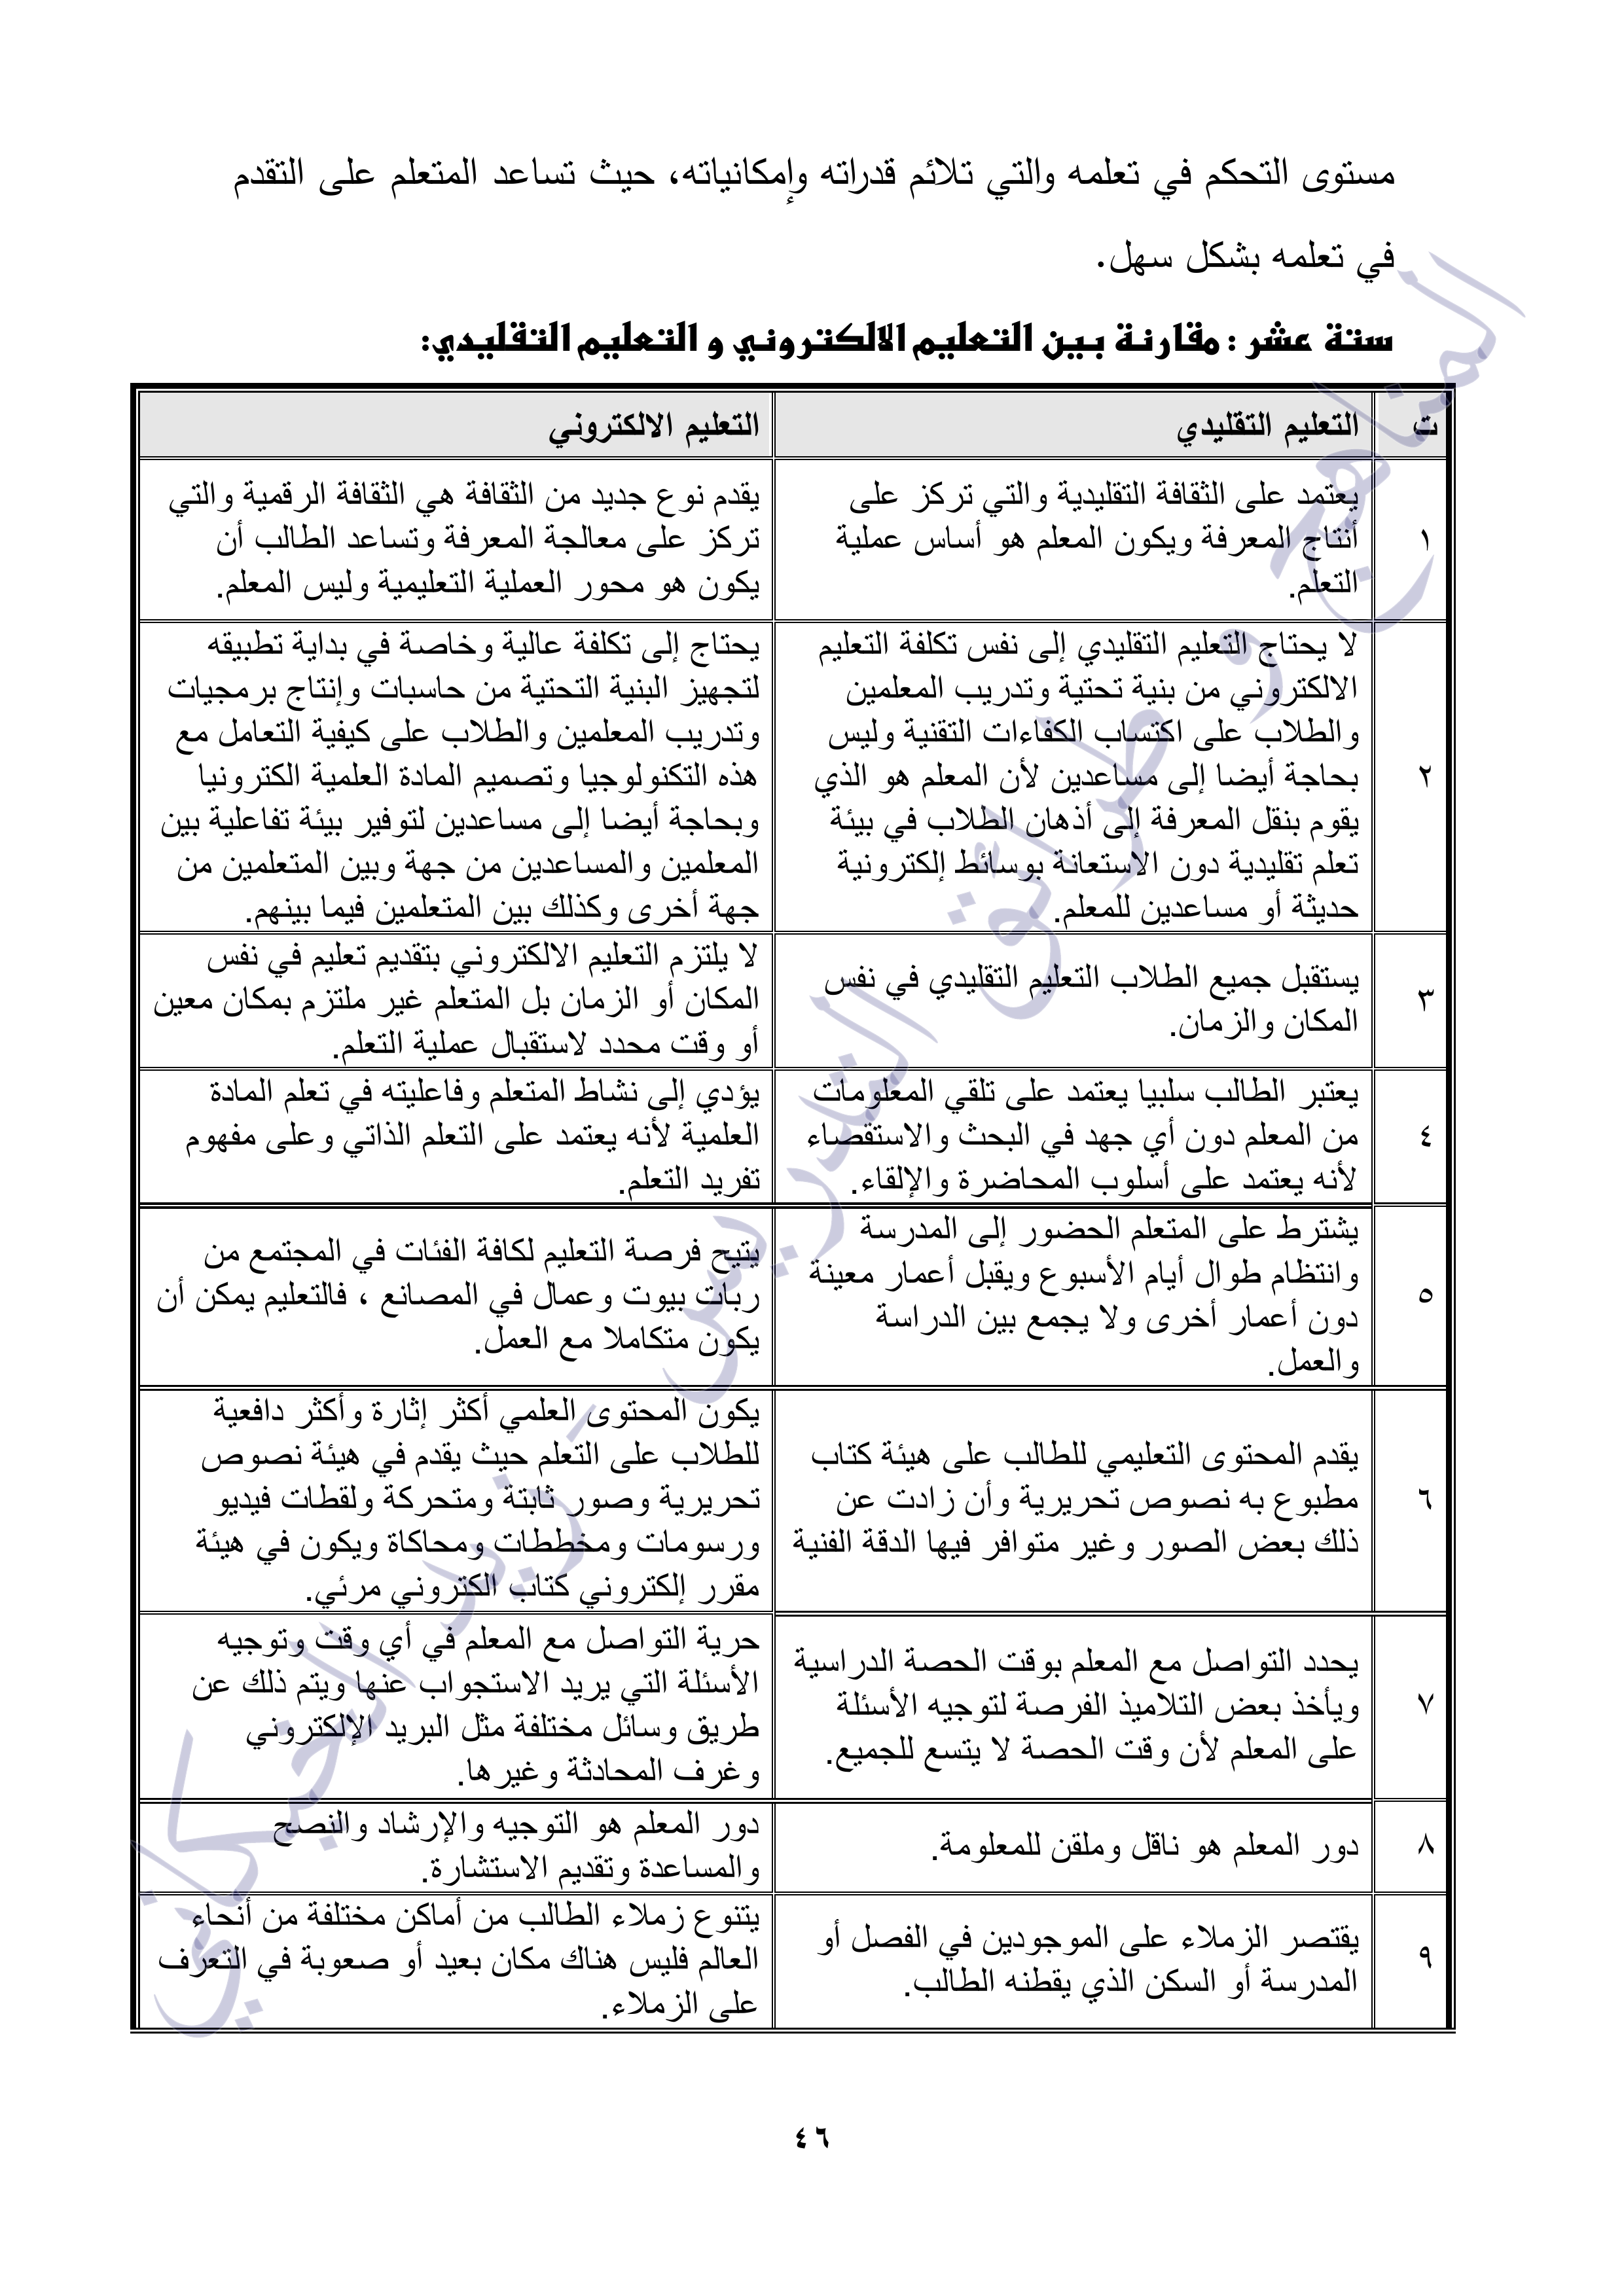 مستوى التحكم في تعلمه والتي تلائم قدراته وإمكانياته، حيث تساعد المتعلم على التقدم
في تعلمه بشكل سهل.
ستة عشر : مقارنة بين التعليم الالكتروني و التعليم التقليدي:
ت
التعليم التقليدي
التعليم الالكتروني
١
يعتمد على الثقافة التقليدية والتي تركز على
أنتاج المعرفة ويكون المعلم هو أساس عملية
التعلم.
يقدم نوع جديد من الثقافة هي الثقافة الرقمية والتي
تركز على معالجة المعرفة وتساعد الطالب أن
يكون هو محور العملية التعليمية وليس المعلم.
٢
لا يحتاج التعليم التقليدي إلى نفس تكلفة التعليم
الالكتروني من بنية تحتية وتدريب المعلمين
والطلاب على اكتساب الكفاءات التقنية وليس
بحاجة أيضا إلى مساعدين لأن المعلم هو الذي
يقوم بنقل المعرفة إلى أذهان الطلاب في بيئة
تعلم تقليدية دون الاستعانة بوسائط إلكترونية
حديثة أو مساعدين للمعلم.
يحتاج إلى تكلفة عالية وخاصة في بداية تطبيقه
لتجهيز البنية التحتية من حاسبات وإنتاج برمجيات
وتدريب المعلمين والطلاب على كيفية التعامل مع
هذه التكنولوجيا وتصميم المادة العلمية الكترونيا
وبحاجة أيضا إلى مساعدين لتوفير بيئة تفاعلية بين
المعلمين والمساعدين من جهة وبين المتعلمين من
جهة أخرى وكذلك بين المتعلمين فيما بينهم.
٣
يستقبل جميع الطلاب التعليم التقليدي في نفس
المكان والزمان.
لا يلتزم التعليم الالكتروني بتقديم تعليم في نفس
المكان أو الزمان بل المتعلم غير ملتزم بمكان معين
أو وقت محدد لاستقبال عملية التعلم.
٤
يعتبر الطالب سلبيا يعتمد على تلقي المعلومات
من المعلم دون أي جهد في البحث والاستقصاء
لأنه يعتمد على أسلوب المحاضرة والإلقاء.
يؤدي إلى نشاط المتعلم وفاعليته في تعلم المادة
العلمية لأنه يعتمد على التعلم الذاتي وعلى مفهوم
تفريد التعلم.
٥
يشترط على المتعلم الحضور إلى المدرسة
وانتظام طوال أيام الأسبوع ويقبل أعمار معينة
دون أعمار أخرى ولا يجمع بين الدراسة
والعمل.
يتيح فرصة التعليم لكافة الفئات في المجتمع من
ربات بيوت وعمال في المصانع ، فالتعليم يمكن أن
يكون متكاملا مع العمل.
٦
يقدم المحتوى التعليمي للطالب على هيئة كتاب
مطبوع به نصوص تحريرية وأن زادت عن
ذلك بعض الصور وغير متوافر فيها الدقة الفنية
يكون المحتوى العلمي أكثر إثارة وأكثر دافعية
للطلاب على التعلم حيث يقدم في هيئة نصوص
تحريرية وصور ثابتة ومتحركة ولقطات فيديو
ورسومات ومخططات ومحاكاة ويكون في هيئة
مقرر إلكتروني كتاب الكتروني مرئي.
٧
يحدد التواصل مع المعلم بوقت الحصة الدراسية
ويأخذ بعض التلاميذ الفرصة لتوجيه الأسئلة
على المعلم لأن وقت الحصة لا يتسع للجميع.
حرية التواصل مع المعلم في أي وقت وتوجيه
الأسئلة التي يريد الاستجواب عنها ويتم ذلك عن
طريق وسائل مختلفة مثل البريد الإلكتروني
وغرف المحادثة وغيرها.
٨
دور المعلم هو ناقل وملقن للمعلومة.
دور المعلم هو التوجيه والإرشاد والنصح
والمساعدة وتقديم الاستشارة.
٩
يقتصر الزملاء على الموجودين في الفصل أو
المدرسة أو السكن الذي يقطنه الطالب.
يتنوع زملاء الطالب من أماكن مختلفة من أنحاء
العالم فليس هناك مكان بعيد أو صعوبة في التعرف
على الزملاء.
المناهج و طرائق التدريس - زيد الخيكاني
٤٦